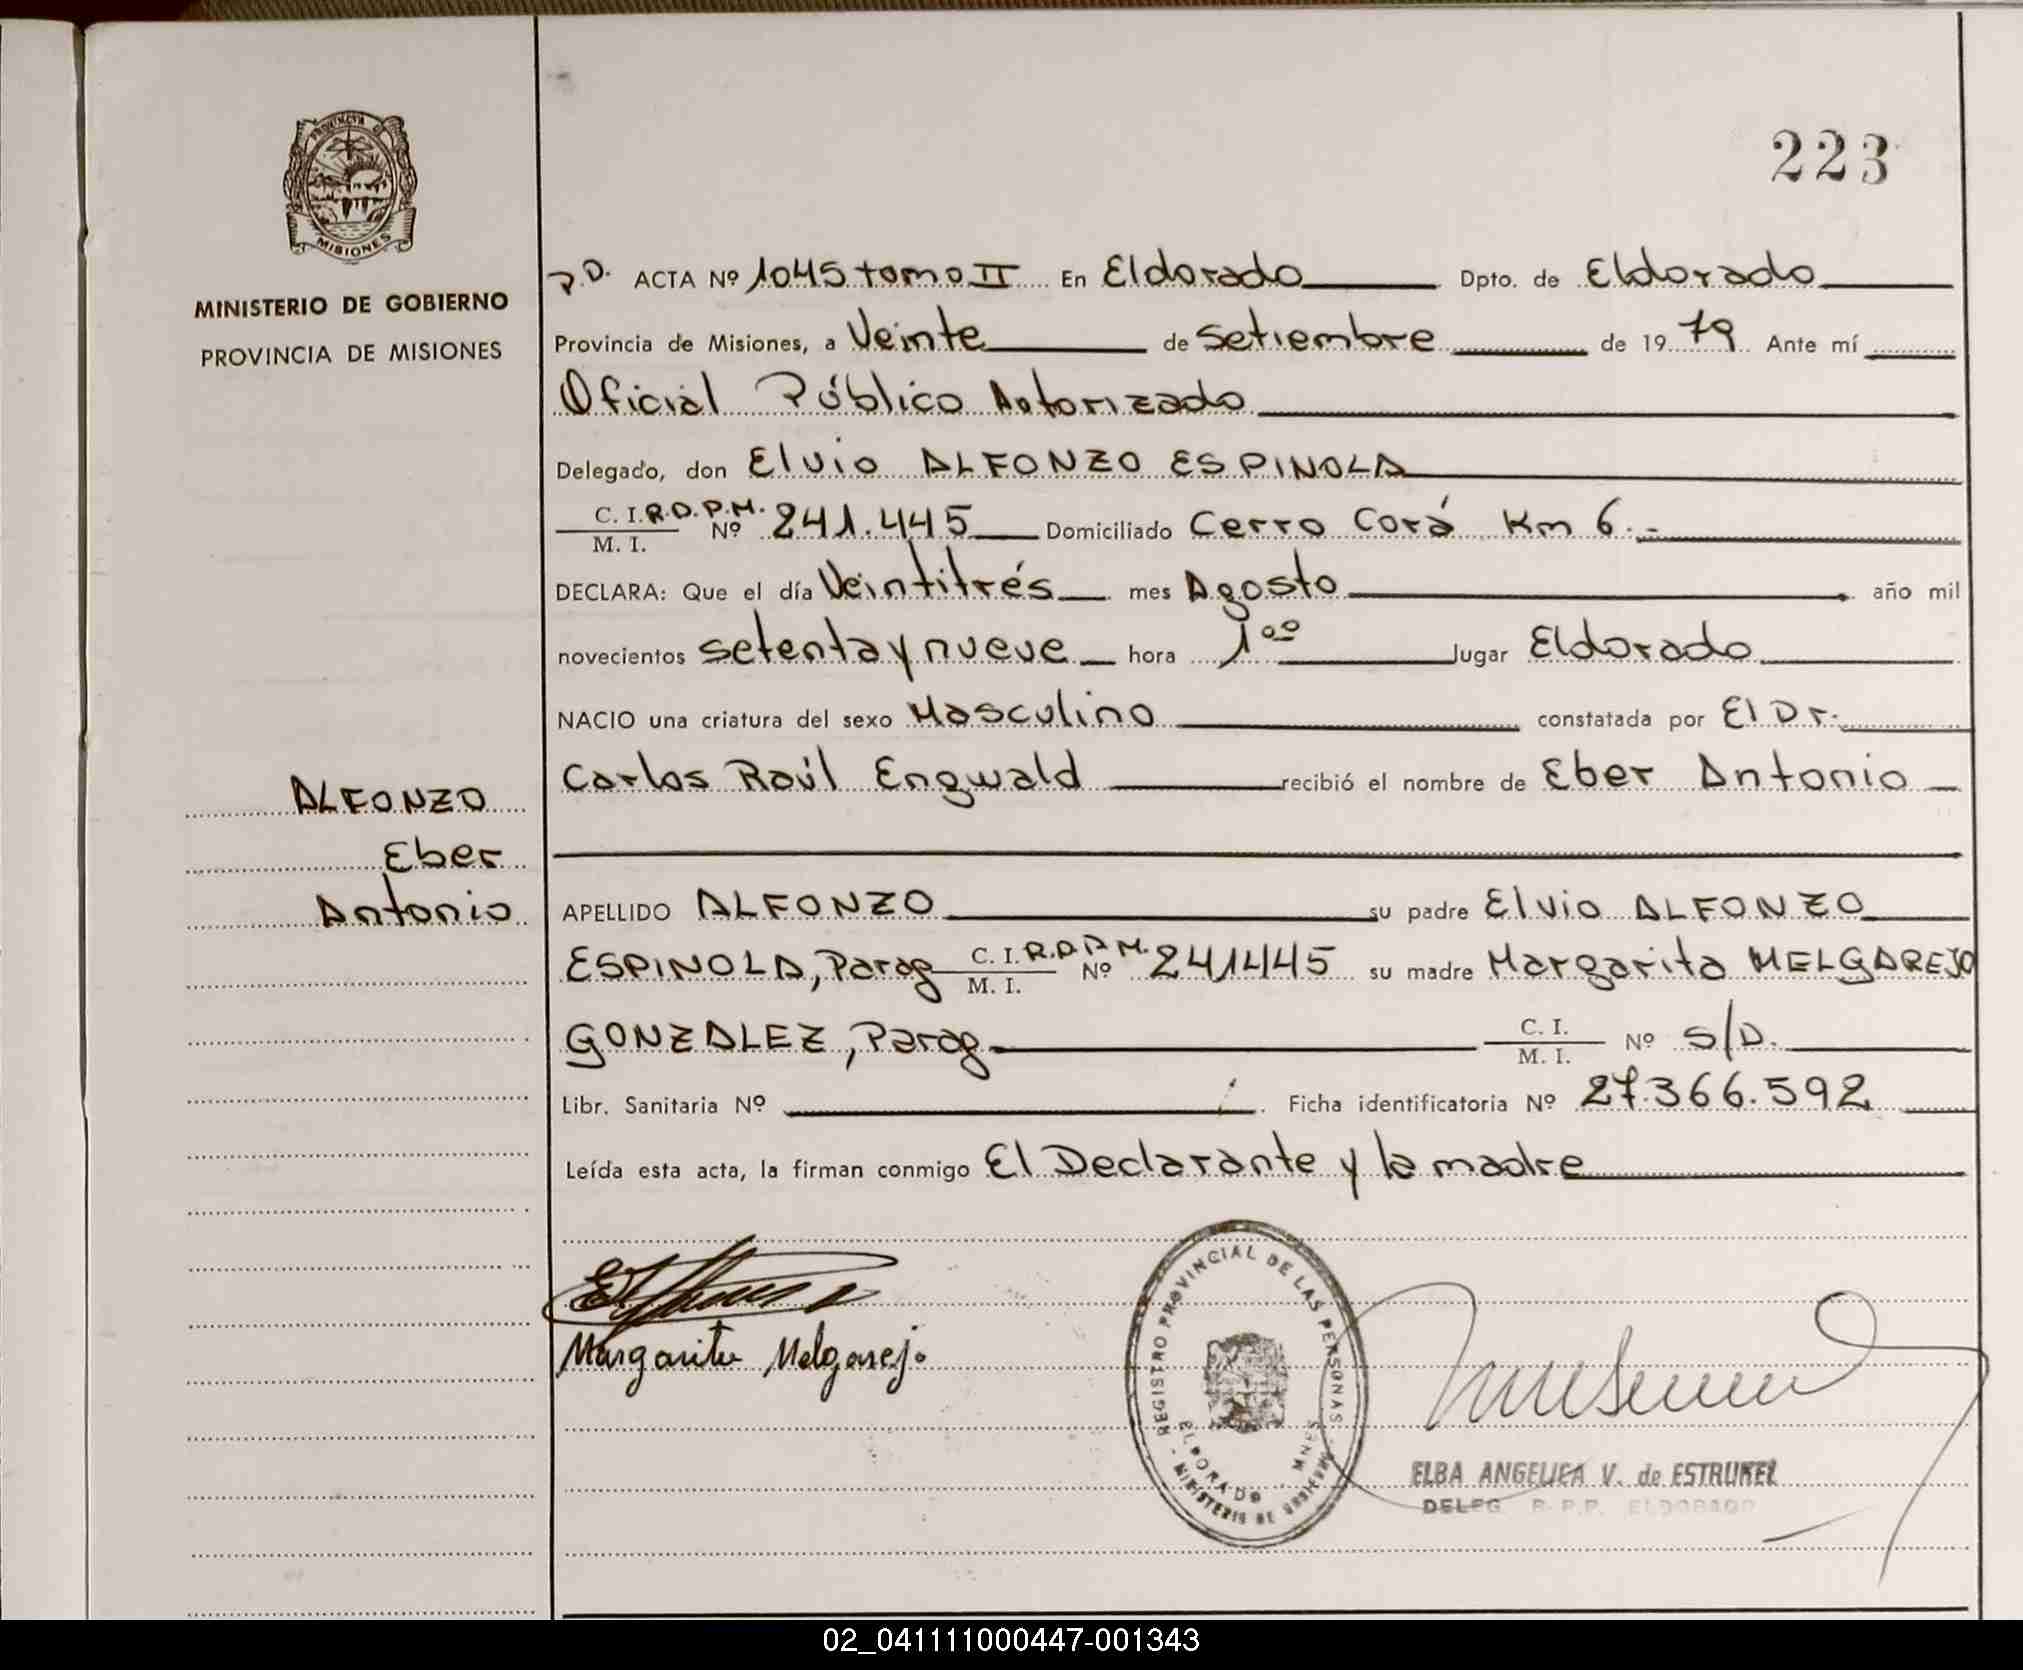 223
PROVINCIA DE
MISIONES
MINISTERIO DE GOBIERNO
PROVINCIA DE MISIONES
P.D. ACTA Nº 1045 tomo II En Eldorado Dpto. de Eldorado
Provincia de Misiones, a Veinte de Setiembre de 1979 Ante mí
Oficial Público Autorizado
Delegado, don Elvio ALFONZO ESPINOLA
C. I. R.D.P.M. / M. I. Nº 241.445 Domiciliado Cerro Corá Km 6.-
DECLARA: Que el día Veintitrés mes Agosto año mil
novecientos setenta y nueve hora 1ºº lugar Eldorado
NACIO una criatura del sexo Masculino constatada por El Dr.
Carlos Raúl Engwald recibió el nombre de Eber Antonio
ALFONZO
Eber
Antonio
APELLIDO ALFONZO su padre Elvio ALFONZO
ESPINOLA, Parag C. I. R.D.P.M. / M. I. Nº 241445 su madre Margarita MELGAREJO
GONZALEZ, Parag C. I. / M. I. Nº S/D.
Libr. Sanitaria Nº Ficha identificatoria Nº 27.366.592
Leída esta acta, la firman conmigo El Declarante y la madre
Margarita Melgarejo
REGISTRO PROVINCIAL DE LAS PERSONAS
ELDORADO - MNES
MINISTERIO DE GOBIERNO
ELBA ANGELICA V. de ESTRUREL
DELEG. R.P.P. ELDORADO
02_041111000447-001343